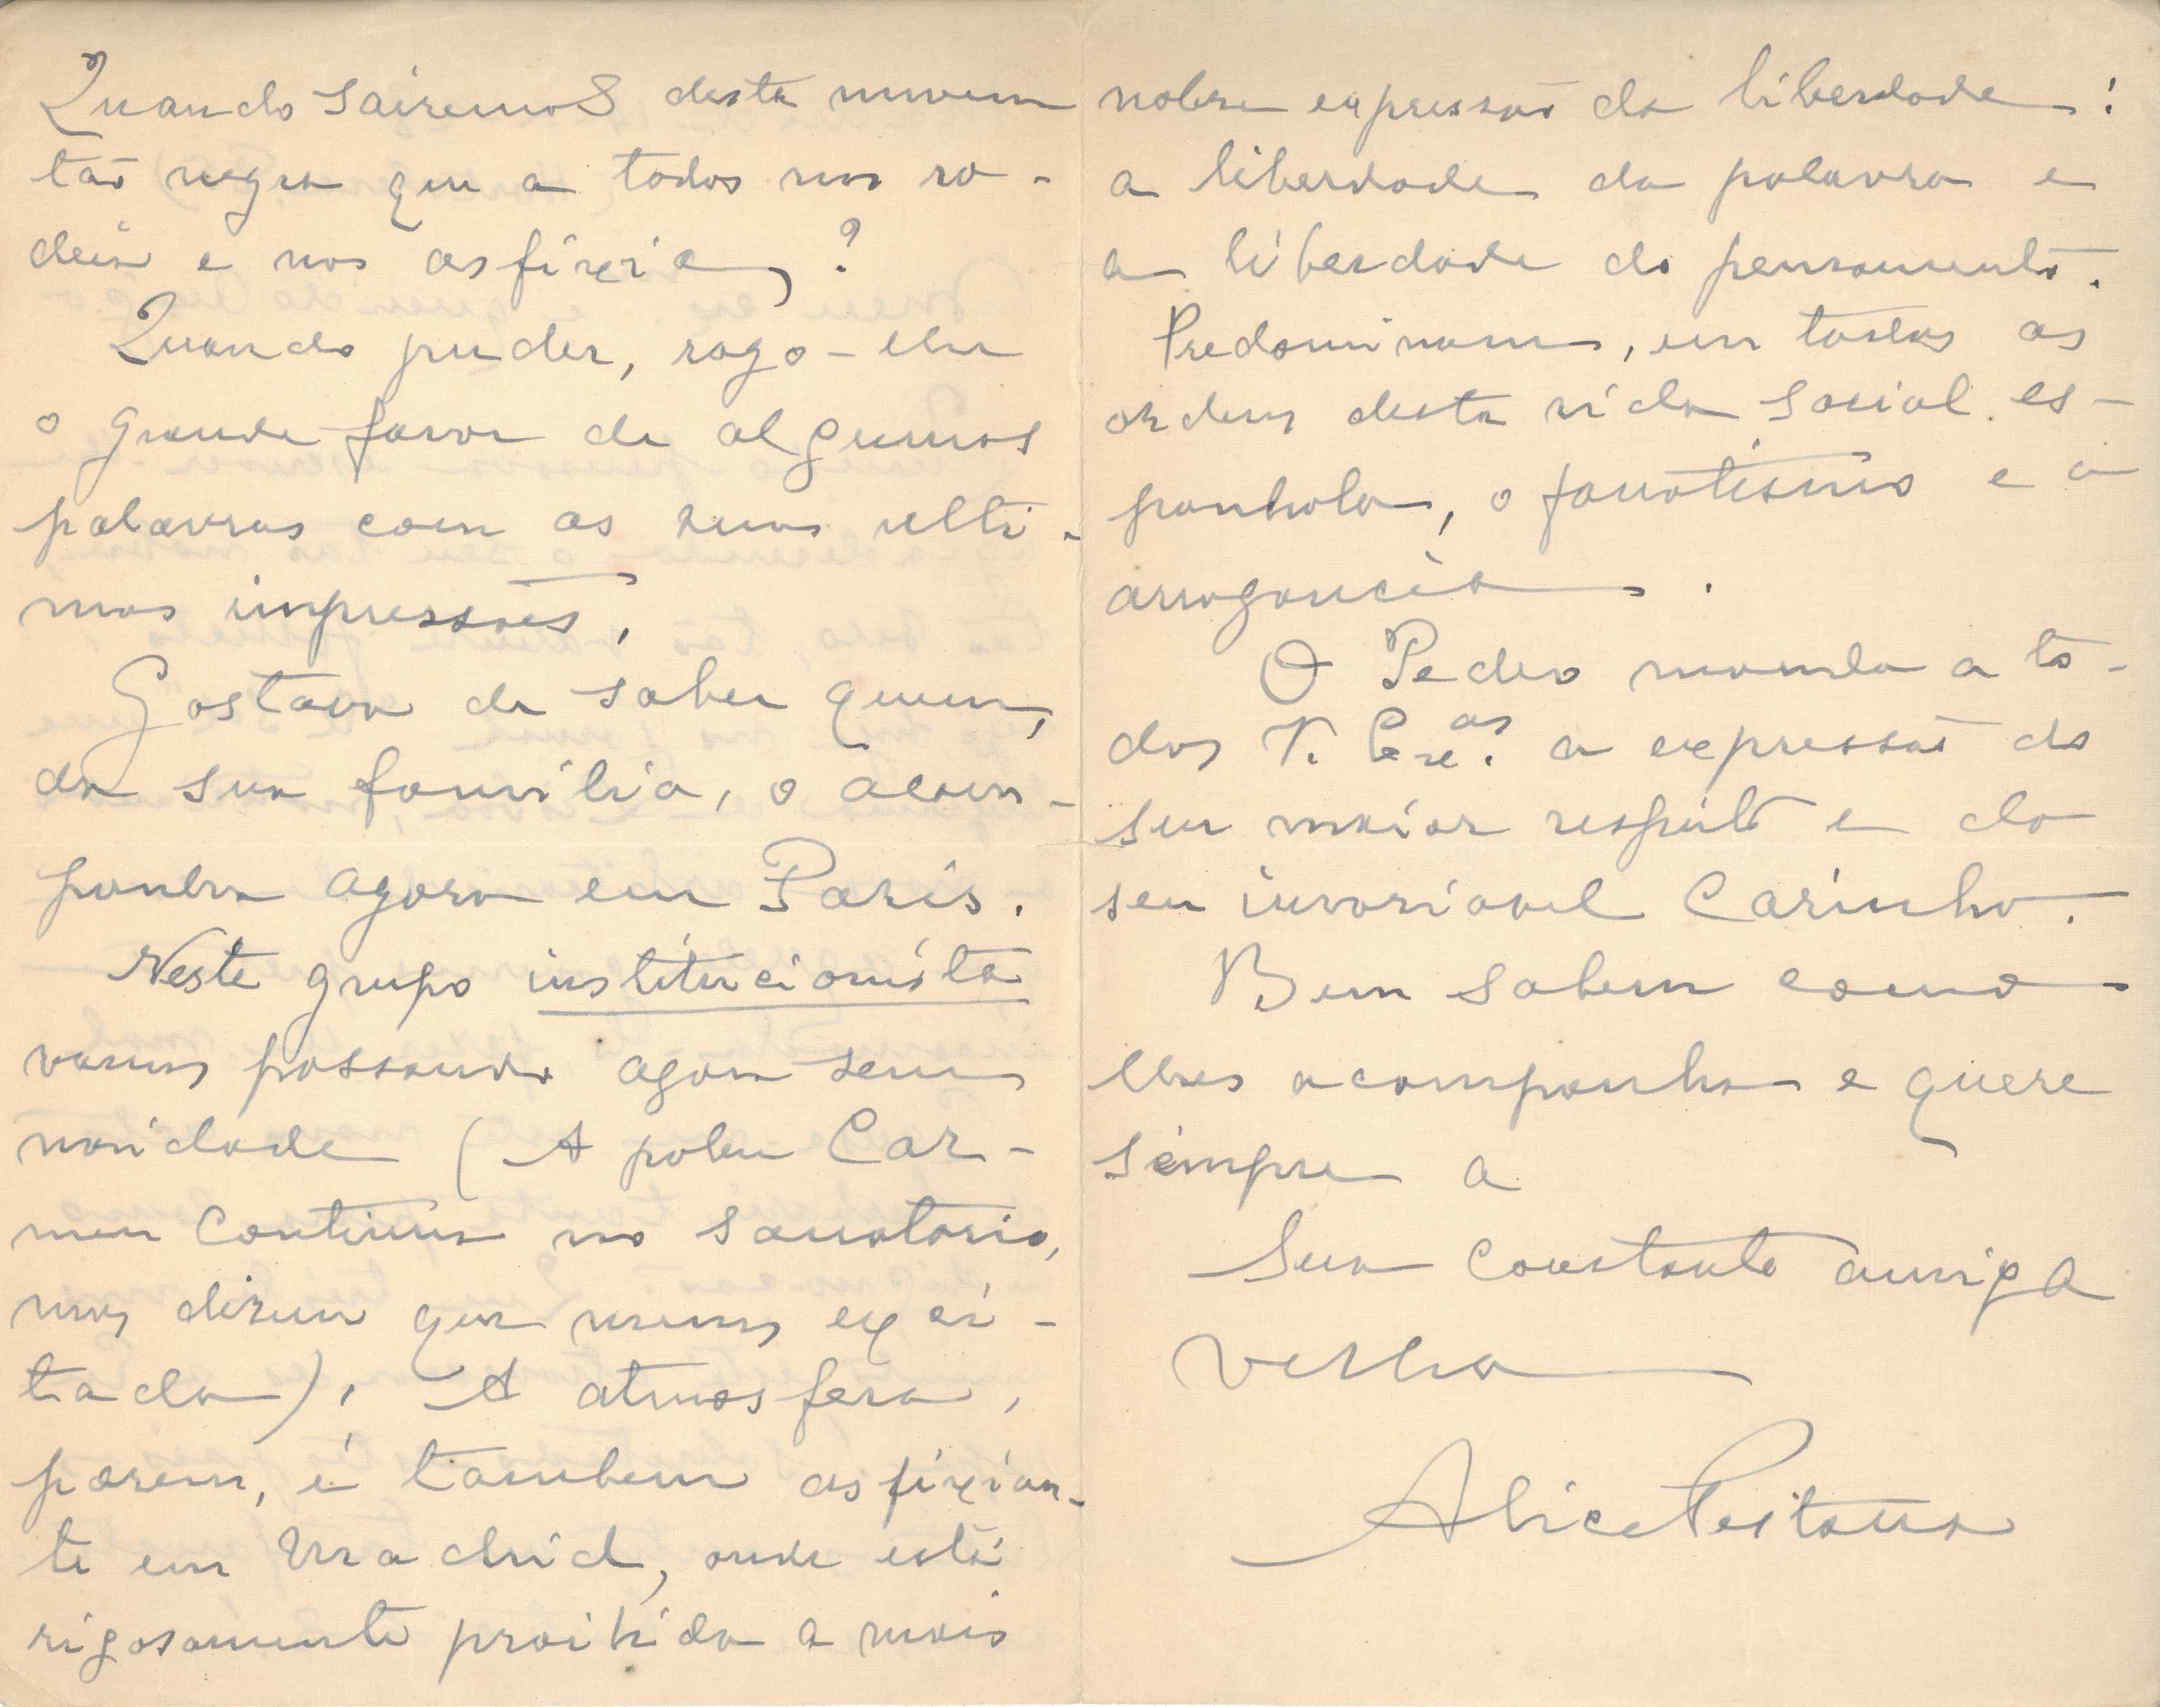 Quando sairemos desta nuvem
tão negra que a todos nos ro-
deia e nos asfixia?
Quando puder, rogo-lhe
o grande favor de algumas
palavras com as suas ulti-
mas impressões.
Gostava de saber quem,
da sua familia, o acom-
panha agora em Paris.
Neste grupo institucionista
vamos passando agora sem
novidade (A pobre Car-
men continua no sanatorio,
mas dizem que menos exci-
tada). A atmosfera,
porem, é tambem asfixian-
te em Madrid, onde está
rigosamente proibida a mais
nobre expressão da liberdade:
a liberdade da palavra e
a liberdade do pensamento.
Predominam, em todas as
ordens desta vida social es-
panhola, o fanatismo e a
arrogancia.
O Pedro manda a to-
dos V. Ex.as a expressão do
seu maior respeito e do
seu invariavel carinho.
Bem sabem como
lhes acompanha e quere
sempre a
Sua constante amiga
velha
Alice Pestana